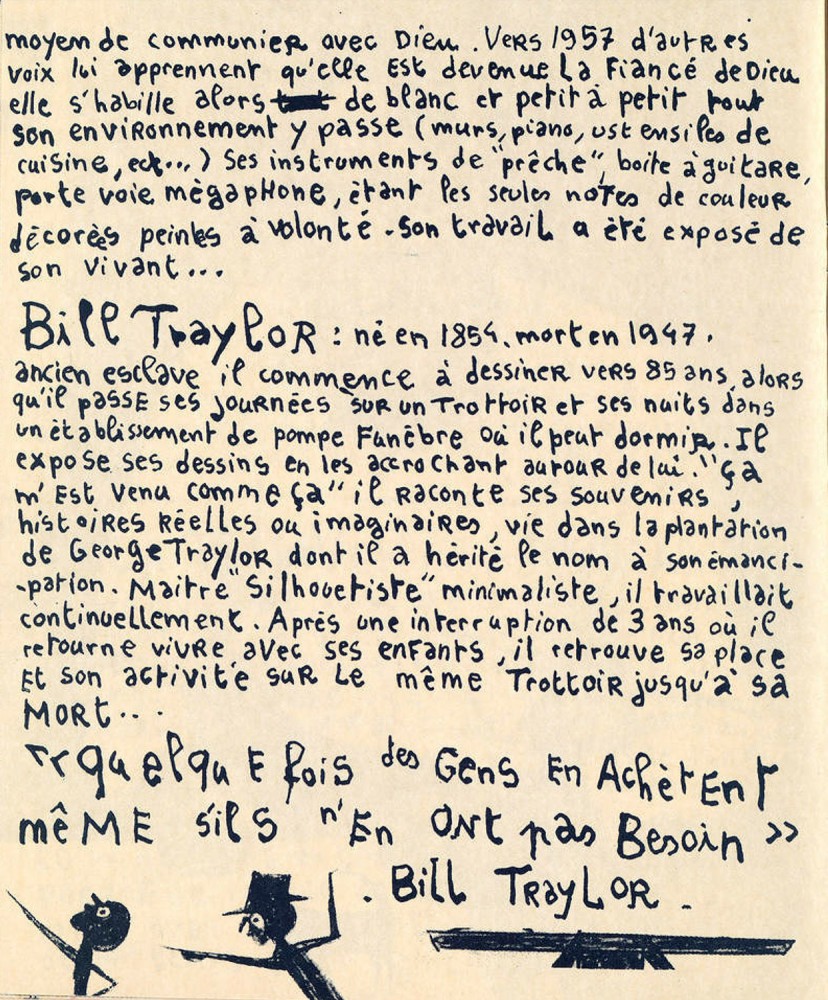 moyen de communier avec Dieu. Vers 1957 d'autres
voix lui apprennent qu'elle est devenue la Fiancé de Dieu
elle s'habille alors de blanc et petit à petit tout
son environnement y passe (murs, piano, ustensiles de
cuisine, ect...) Ses instruments de "prêche", boite à guitare,
porte voie mégaphone, étant les seules notes de couleur
décorées peintes à volonté. Son travail a été exposé de
son vivant...
Bill Traylor : né en 1854. mort en 1947.
ancien esclave il commence à dessiner vers 85 ans, alors
qu'il passe ses journées sur un Trottoir et ses nuits dans
un établissement de pompe Funèbre où il peut dormir. Il
expose ses dessins en les accrochant autour de lui. "ça
m'est venu comme ça" il raconte ses souvenirs,
histoires réelles ou imaginaires, vie dans la plantation
de George Traylor dont il a hérité le nom à son émanci-
-pation. Maitre "Silhouetiste" minimaliste, il travaillait
continuellement. Après une interruption de 3 ans où il
retourne vivre avec ses enfants, il retrouve sa place
et son activité sur le même Trottoir jusqu'à sa
Mort...
«quelque fois des Gens en Achètent
même s'ils n'en ont pas Besoin»
. Bill Traylor.